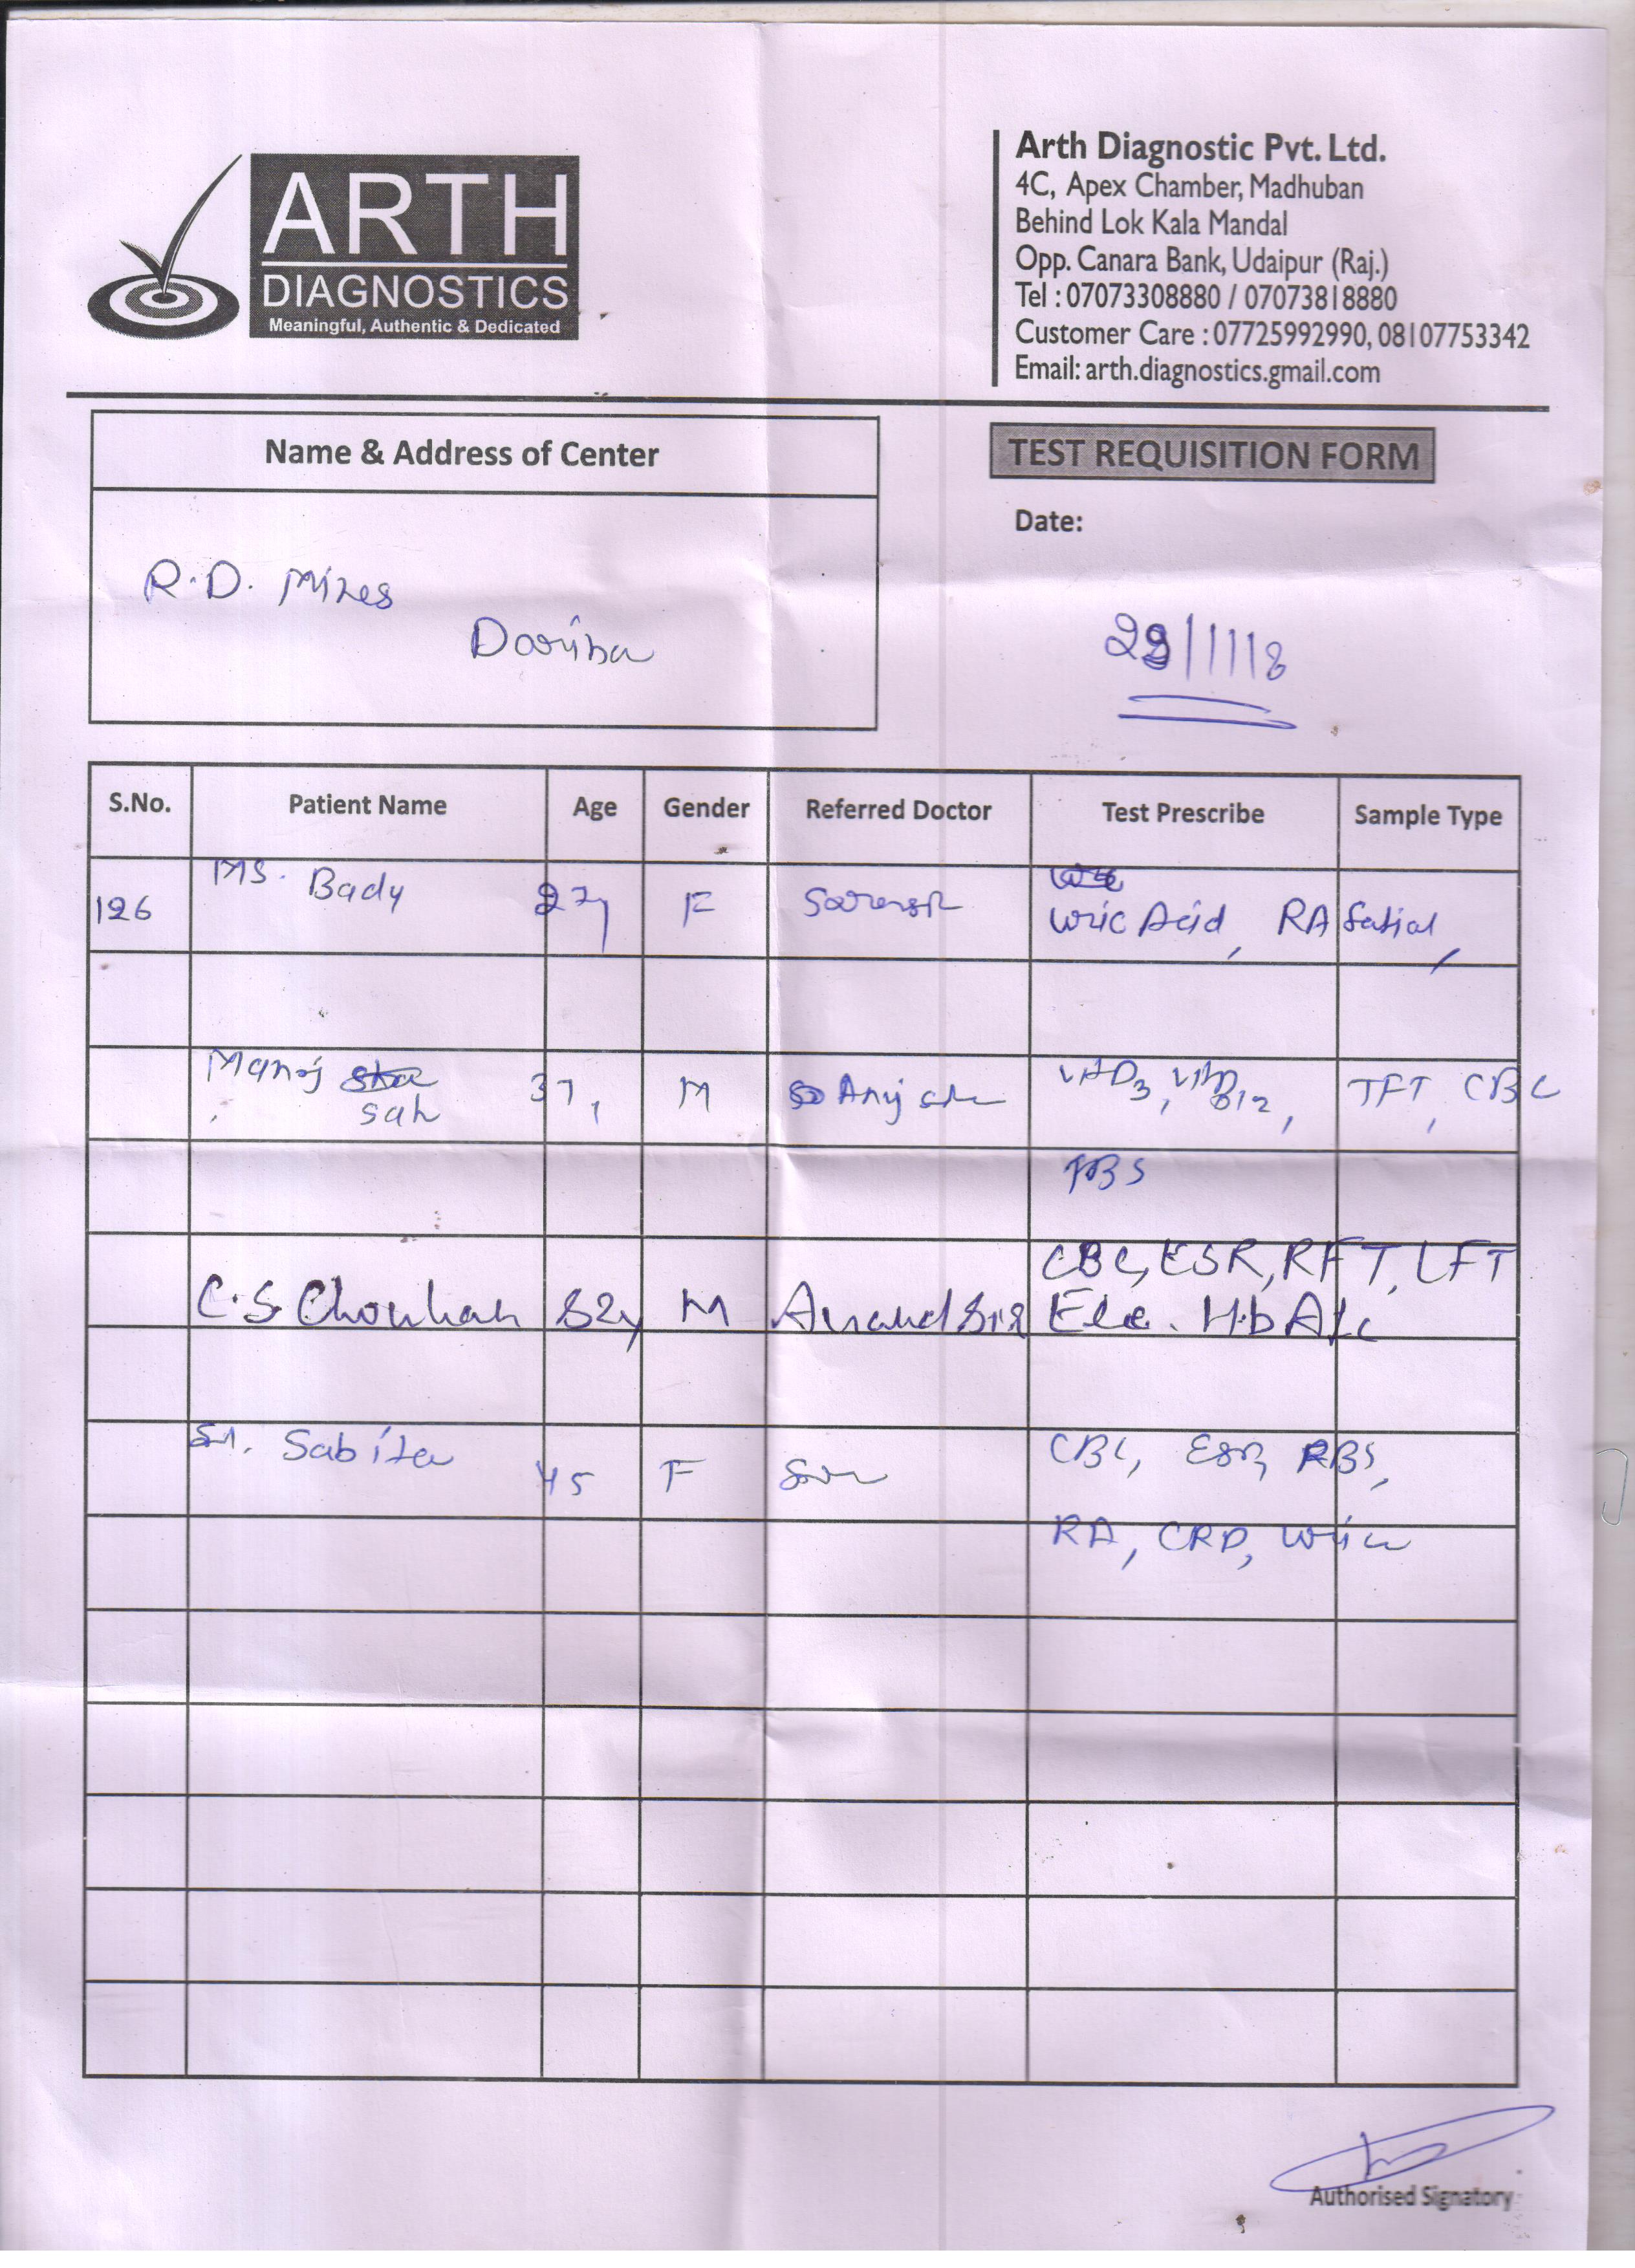 ARTH
DIAGNOSTICS
Meaningful, Authentic & Dedicated
Arth Diagnostic Pvt. Ltd.
4C, Apex Chamber, Madhuban
Behind Lok Kala Mandal
Opp. Canara Bank, Udaipur (Raj.)
Tel : 07073308880 / 07073818880
Customer Care : 07725992990, 08107753342
Email: arth.diagnostics.gmail.com
Name & Address of Center
TEST REQUISITION FORM
Date:
R.D. Mines
Dariba
/11/18
S.No. Patient Name Age Gender Referred Doctor Test Prescribe Sample Type
MS. Bady
126 27y F Uric Acid, RA
Manoj 37, M VitD3, VitB12, TFT, CBC
sah
FBS
CBC, ESR, RFT, LFT
C.S. Chouhan 52y M Anand Sir Ele. HbA1c
Sabita 45 F CBC, ESR, RBS,
RA, CRP, Uric
Authorised Signatory